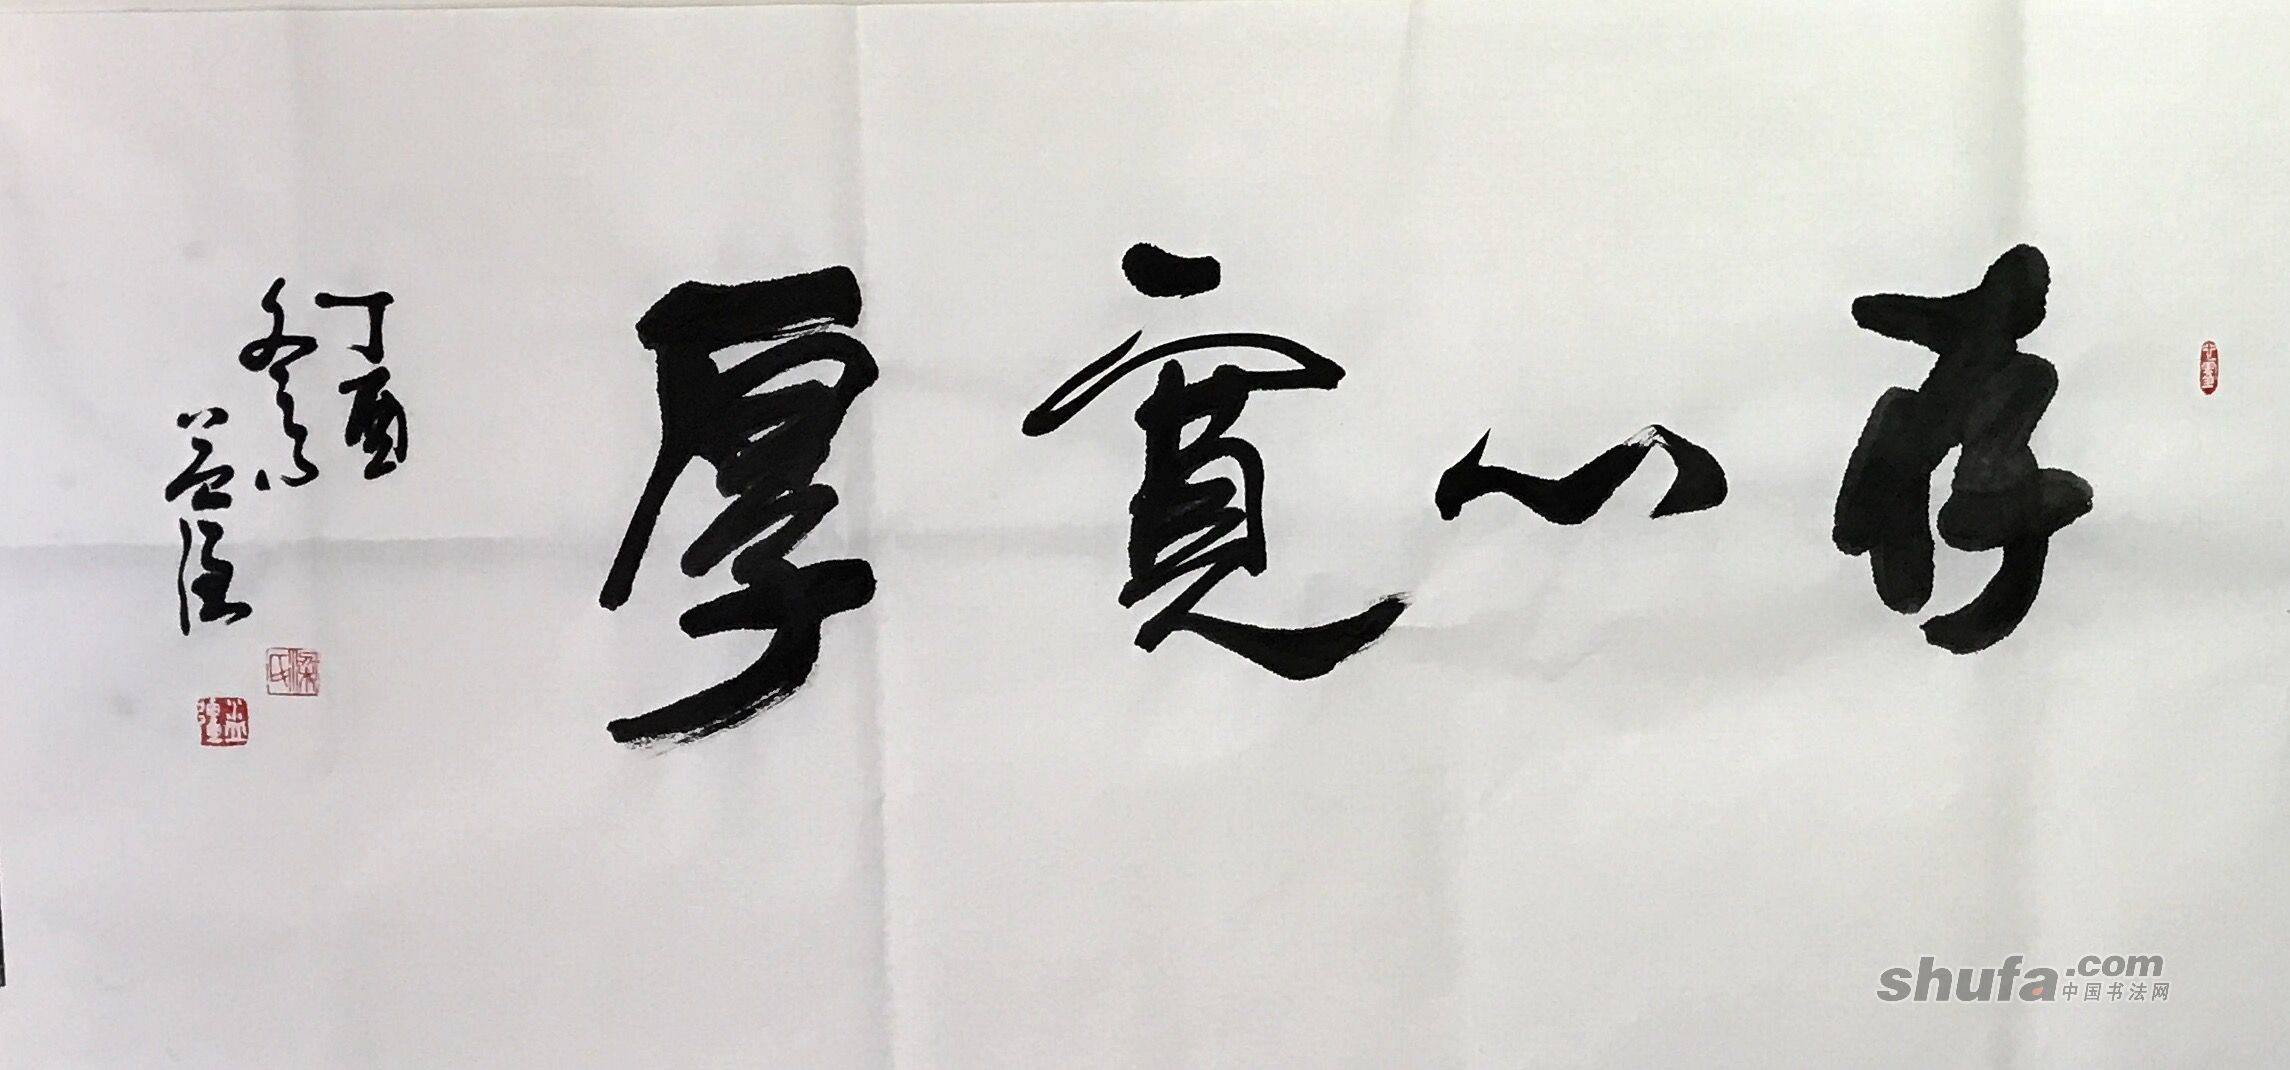 存心寬厚
丁酉
冬月
益律
梁氏
shufa.com
中国书法网